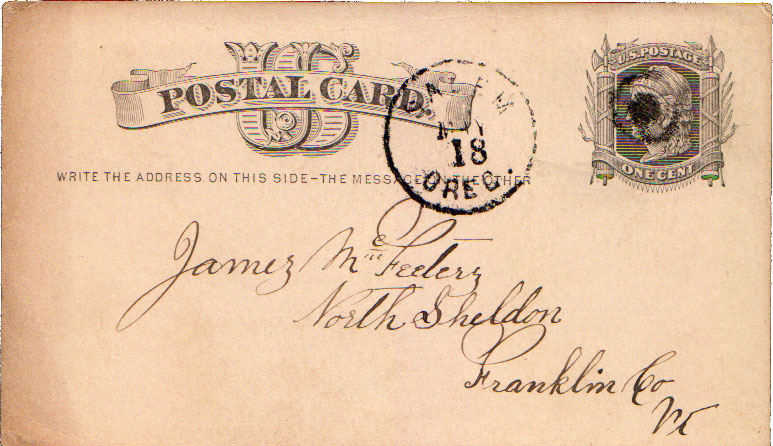 US
POSTAL CARD.
U.S. POSTAGE
ONE CENT
18
OREG.
WRITE THE ADDRESS ON THIS SIDE-THE MESSAGE ON THE OTHER
James McFeeters
North Sheldon
Franklin Co
Vt